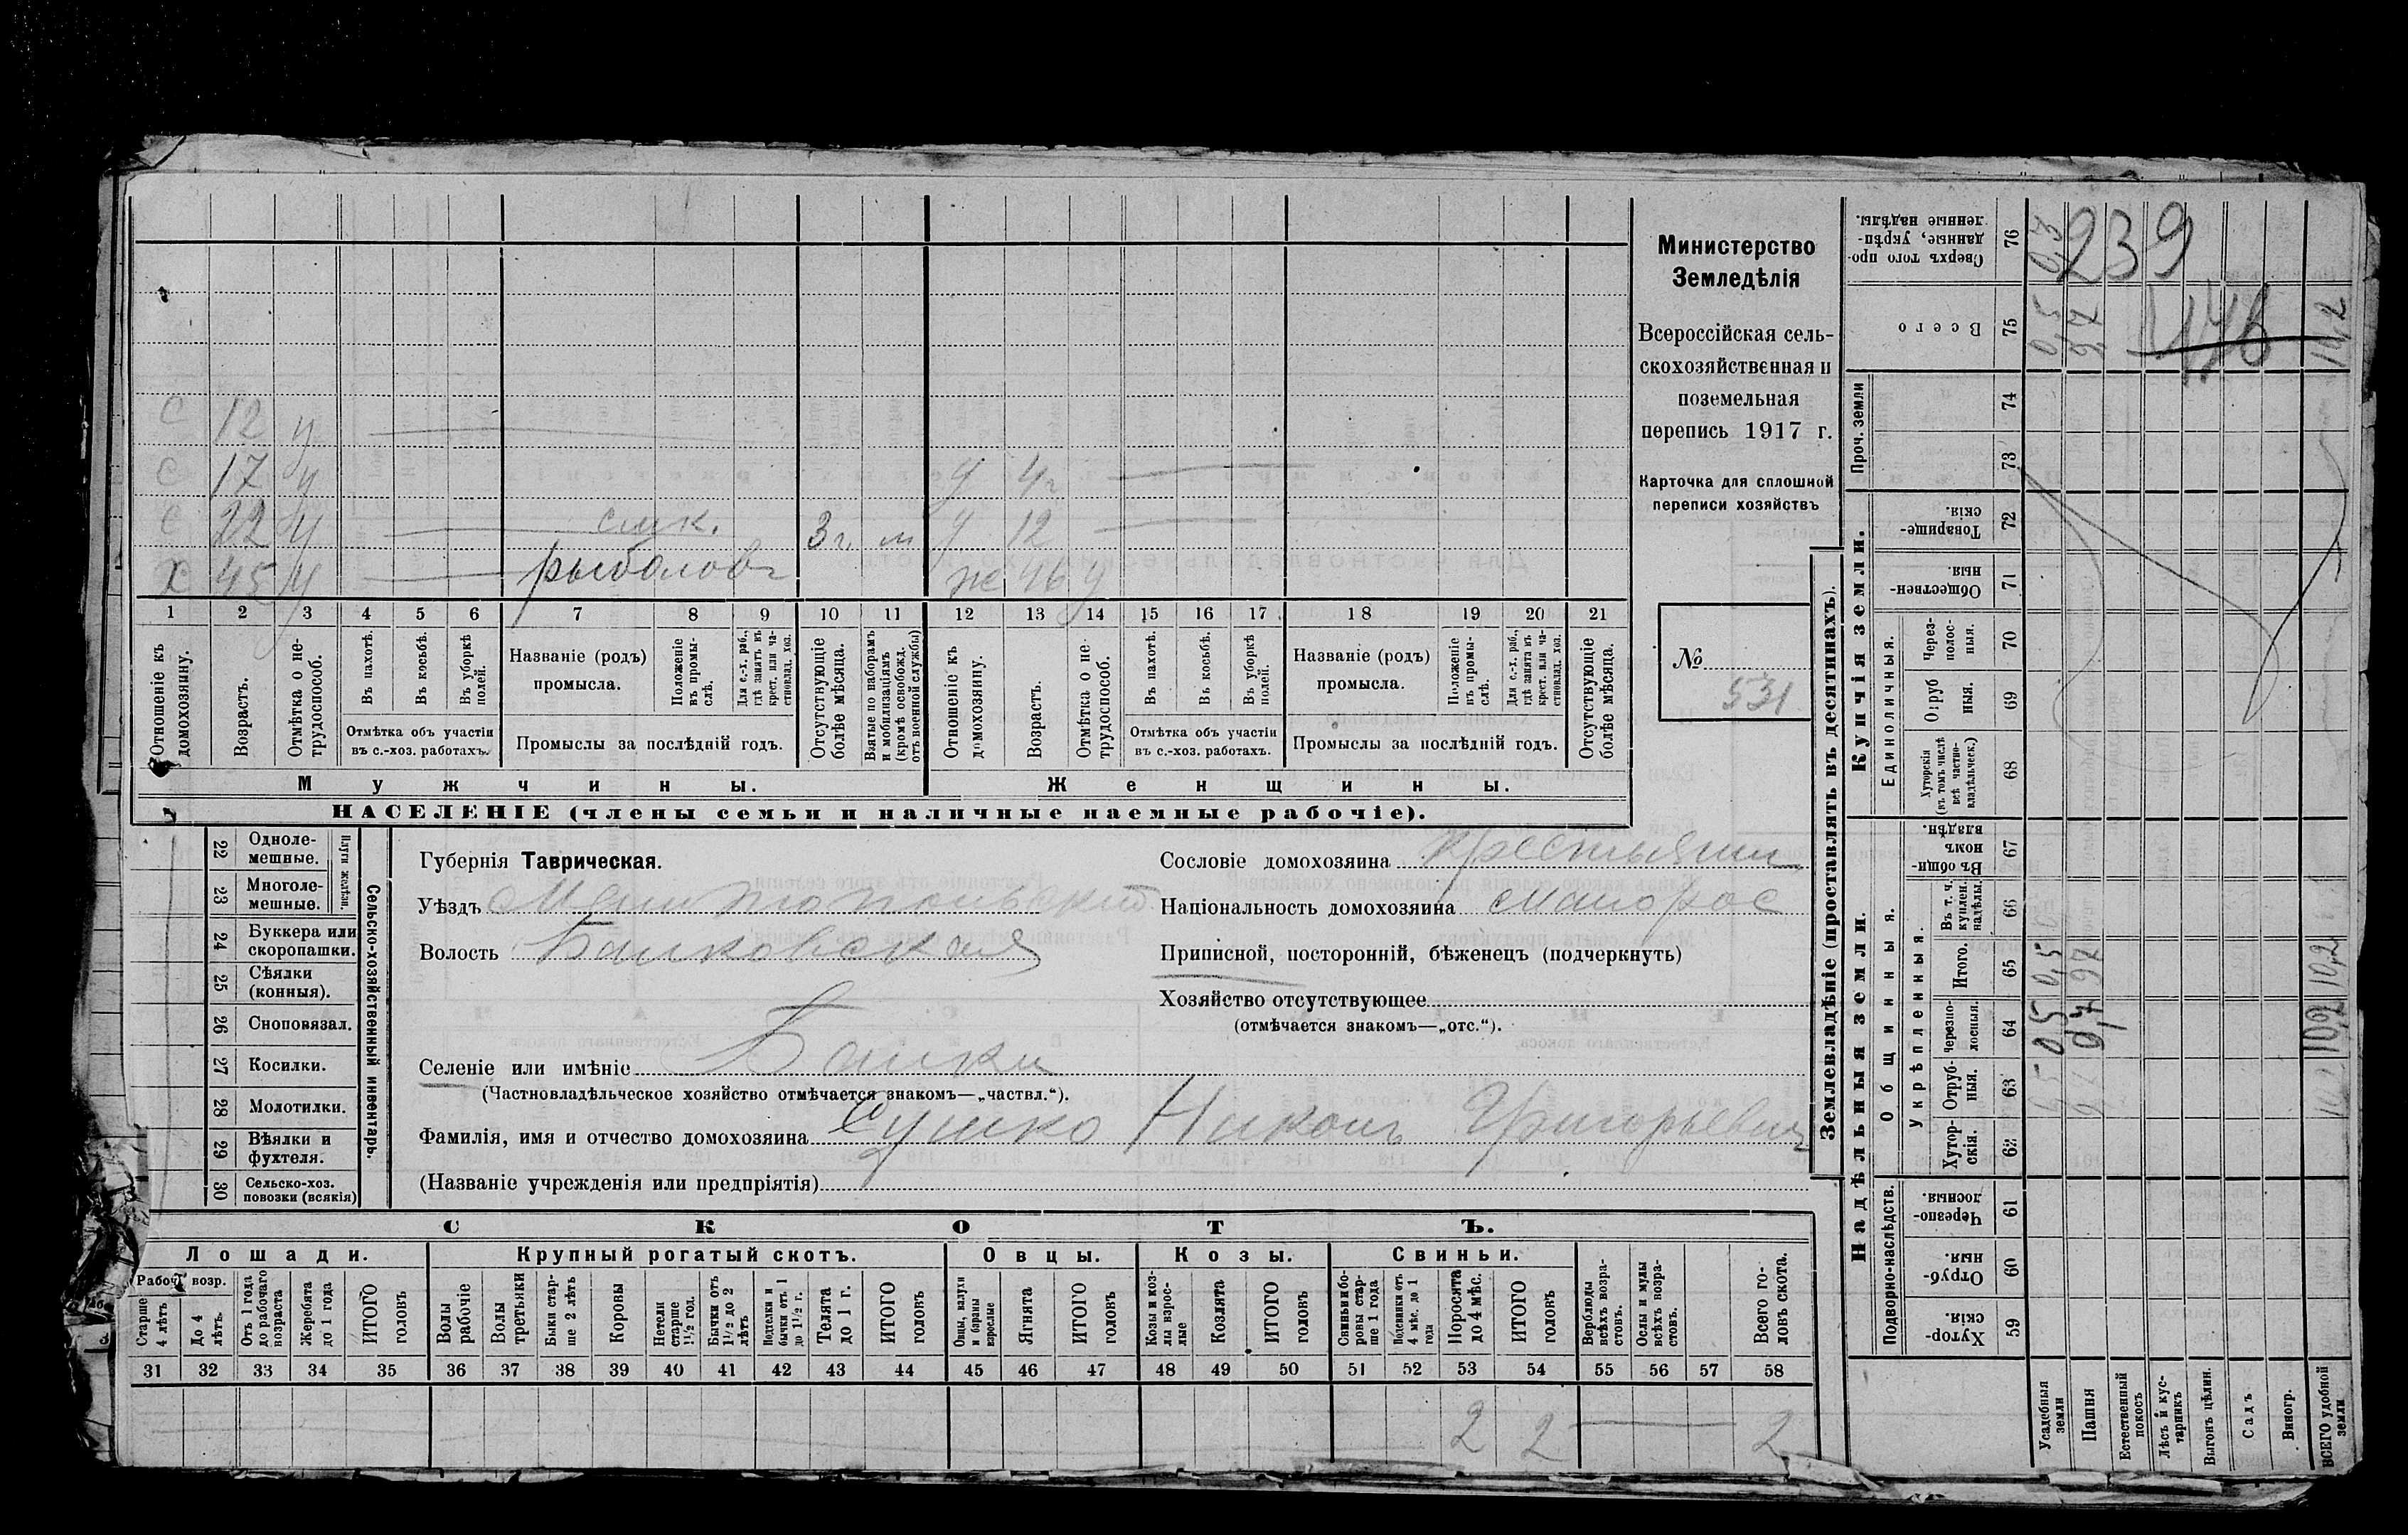 С 12 у
С 17 у
д 4 г
С 22 у
слк.
3 г. м
д 12
х 45 у
рыболовъ
ж 46 у
1 2 3 4 5 6 7 8 9 10 11 12 13 14 15 16 17 18 19 20 21
Отношеніе къ домохозяину.
Возрастъ.
Отмѣтка о не-
трудоспособ.
Въ пахотѣ.
Въ косьбѣ.
Въ уборкѣ полей.
Отмѣтка объ участіи
въ с.-хоз. работахъ.
Названіе (родъ)
промысла.
Положеніе въ промы-
слѣ.
Для с.-х. раб., гдѣ занятъ въ крест. или ча-
стновлад. хоз.
Промыслы за послѣдній годъ.
Отсутствующіе болѣе мѣсяца.
Взятые по наборамъ и мобилизаціямъ (кромѣ освобожд. отъ военной службы)
Отношеніе къ домохозяину.
Возрастъ.
Отмѣтка о не-
трудоспособ.
Въ пахотѣ.
Въ косьбѣ.
Въ уборкѣ полей.
Отмѣтка объ участіи
въ с.-хоз. работахъ.
Названіе (родъ)
промысла.
Положеніе въ промы-
слѣ.
Для с.-х. раб., гдѣ занята въ крест. или ча-
стновлад. хоз.
Промыслы за послѣдній годъ.
Отсутствующіе болѣе мѣсяца.
Мужчины.
Женщины.
НАСЕЛЕНІЕ (члены семьи и наличные наемные рабочіе).
Министерство
Земледѣлія
Всероссійская сель-
скохозяйственная и
поземельная
перепись 1917 г.
Карточка для сплошной
переписи хозяйствъ
№
531
22 Одноле-
мешные.
23 Многоле-
мешные.
Плуги желѣзн.
24 Буккера или
скоропашки.
25 Сѣялки
(конныя).
26 Сноповязал.
27 Косилки.
28 Молотилки.
29 Вѣялки и
фухтеля.
30 Сельско-хоз.
повозки (всякія)
Сельско-хозяйственный инвентарь.
Губернія Таврическая.
Уѣздъ Мелитопольскій
Волость Балковская
Селеніе или имѣніе Балки
(Частновладѣльческое хозяйство отмѣчается знакомъ—„частвл.“).
Фамилія, имя и отчество домохозяина Сушко Никонъ Григорьевич
(Названіе учрежденія или предпріятія)
Сословіе домохозяина Крестьянин
Національность домохозяина малорос
Приписной, посторонній, бѣженецъ (подчеркнуть)
Хозяйство отсутствующее
(отмѣчается знакомъ—„отс.“).
СКОТЪ.
Лошади.
Крупный рогатый скотъ.
Овцы.
Козы.
Свиньи.
Рабоч. возр.
Старше 4 лѣтъ
До 4 лѣтъ.
Отъ 1 года до рабочаго возраста
Жеребята до 1 года
ИТОГО головъ
Волы рабочіе
Волы третьяки
Быки стар-
ше 2 лѣтъ
Коровы
Нетели старше 1½ год.
Бычки отъ 1½ до 2 лѣтъ
Подтелки и бычки отъ 1 до 1½ г.
Телята до 1 г.
ИТОГО головъ
Овцы, валухи и бараны взрослые
Ягнята
ИТОГО головъ
Козы и коз-
лы взрос-
лые
Козлята
ИТОГО головъ
Свиньи и бо-
ровы стар-
ше 1 года
Подсвинки отъ 4 мѣс. до 1 года
Поросята до 4 мѣс.
ИТОГО головъ
Верблюды всѣхъ возра-
стовъ.
Ослы и мулы всѣхъ возра-
стовъ.
Всего го-
ловъ скота.
31 32 33 34 35 36 37 38 39 40 41 42 43 44 45 46 47 48 49 50 51 52 53 54 55 56 57 58
2 2 2
Землевладѣніе (проставлять въ десятинахъ).
Купчія земли.
Надѣльныя земли.
Проч. земли
Единоличныя.
Общинныя.
Укрѣпленныя.
Подворно-наслѣдств.
Сверхъ того про-
данные, укрѣп-
ленные надѣлы. 76
0,3
239
Всего 75
0,5 9,7 10,2
176
74
73
Товарище-
скія. 72
Обществен-
ныя. 71
Через-
полос-
ныя. 70
Отруб
ныя. 69
Хуторскія (въ томъ числѣ всѣ частно-
владѣльческ.) 68
Въ общи-
номъ
владѣн. 67
Въ т. ч. куплен. надѣлы. 66
Итого. 65
0,5 9,7 10,2
Черезпо-
лосныя. 64
0,5 9,7 10,2
Отруб-
ныя. 63
Хутор-
скія. 62
Черезпо-
лосныя. 61
Отруб-
ныя. 60
Хутор-
скія. 59
Усадебныя земли
Пашня
Естественный покосъ
Лѣсъ и кус-
тарникъ
Выгонъ цѣлин.
Садъ
Виногр.
ВСЕГО удобной земли